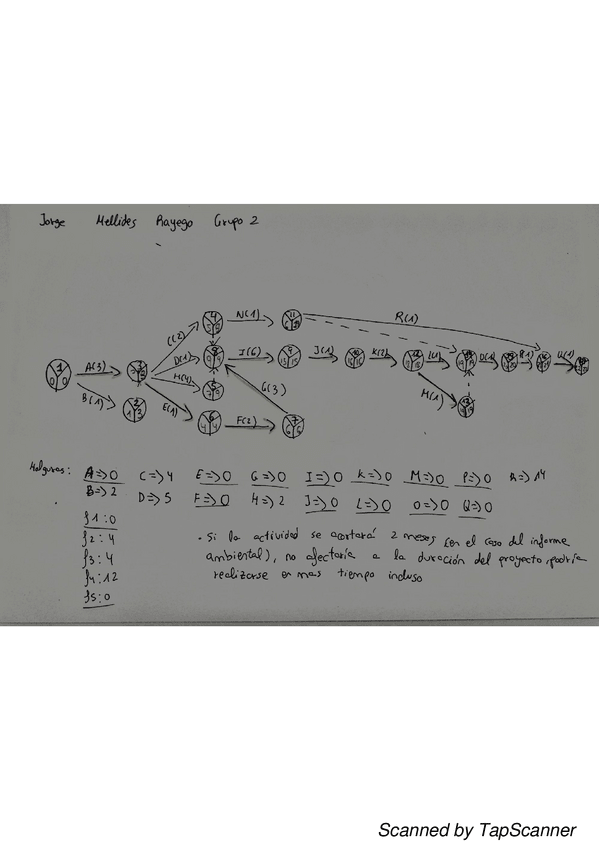 Jorge Mellides Rayego Grupo 2
N(1) R(1)
C(2) D(1) I(6) J(1) K(2) L(1) O(1) P(1) Q(1)
A(3) H(4) G(3) M(1)
B(1) E(1) F(2)
Holguras: A=>0 C=>4 E=>0 G=>0 I=>0 K=>0 M=>0 P=>0 R=>14
B=>2 D=>5 F=>0 H=>2 J=>0 L=>0 O=>0 Q=>0
f1:0
f2:4
f3:4
f4:12
f5:0
· Si la actividad se acortará 2 meses (en el caso del informe
ambiental), no afectaría a la duración del proyecto, podría
realizarse en mas tiempo incluso
Scanned by TapScanner